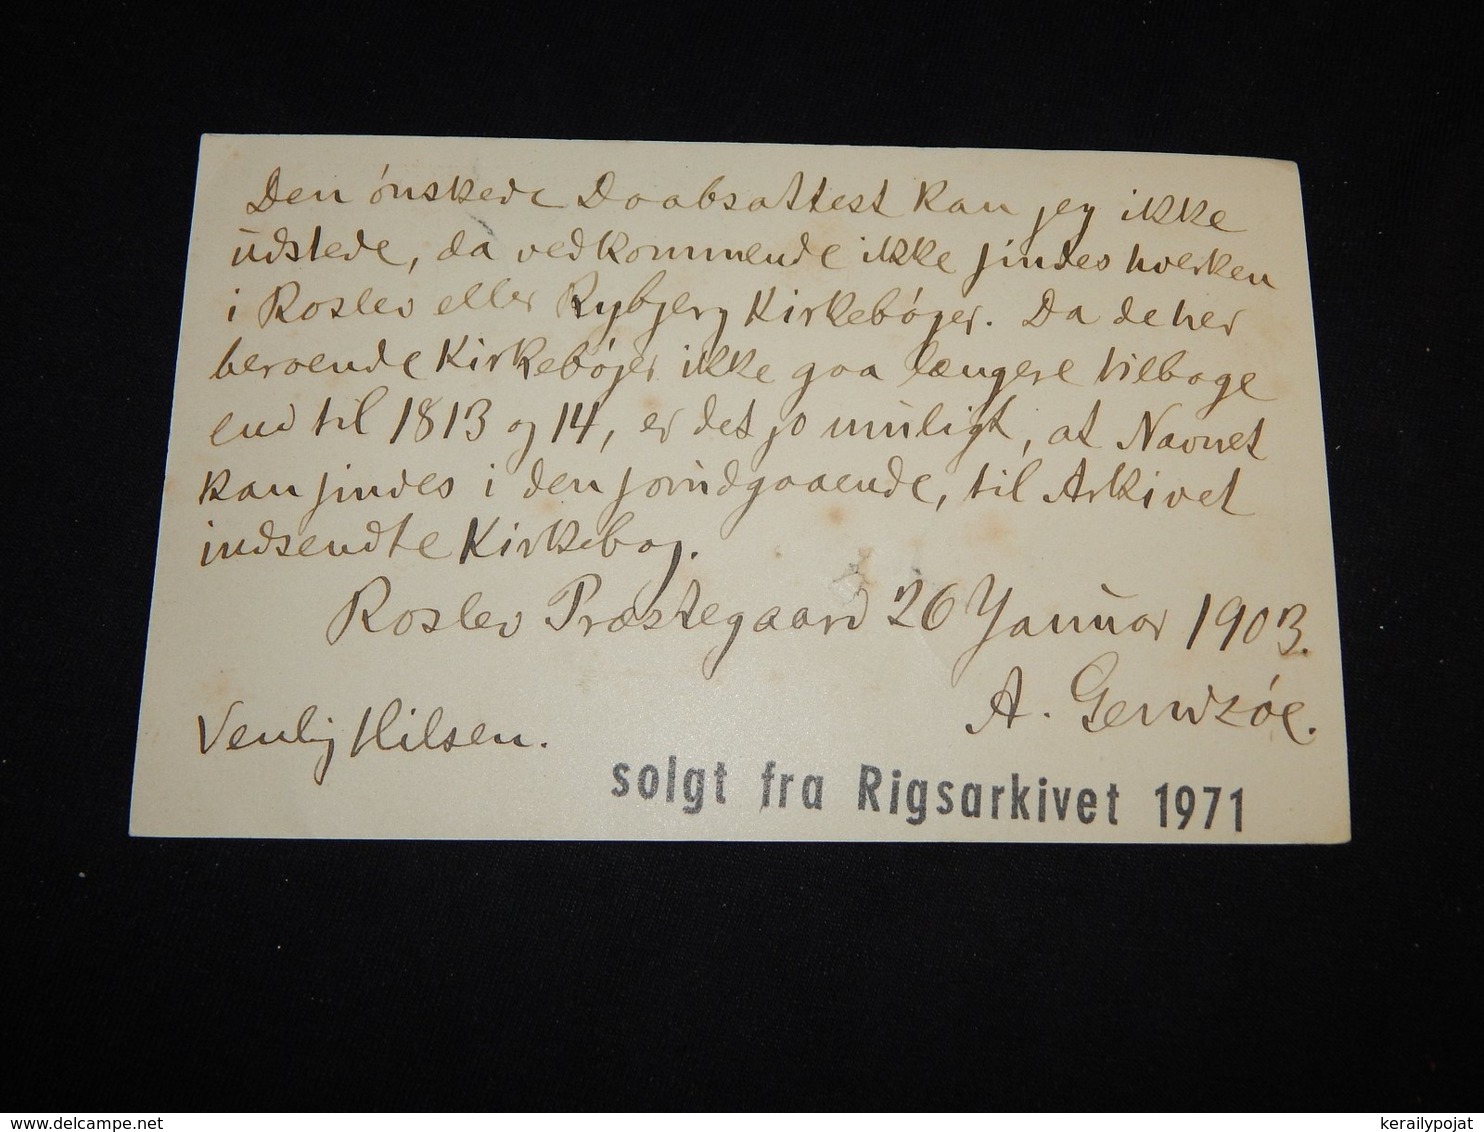 Den ønskede Daabsattest kan jeg ikke
udstede, da vedkommende ikke findes hverken
i Roslev eller Rybjerg Kirkebøger. Da de her
beroende Kirkebøger ikke gaa længere tilbage
end til 1813 og 14, er det jo muligt, at Navnet
kan findes i den forudgaaende, til Arkivet
indsendte Kirkebog.
Roslev Præstegaard 26 Januar 1903.
A. Gerndzøe.
Venlig Hilsen.
solgt fra Rigsarkivet 1971
www.delcampe.net
kerailypojat